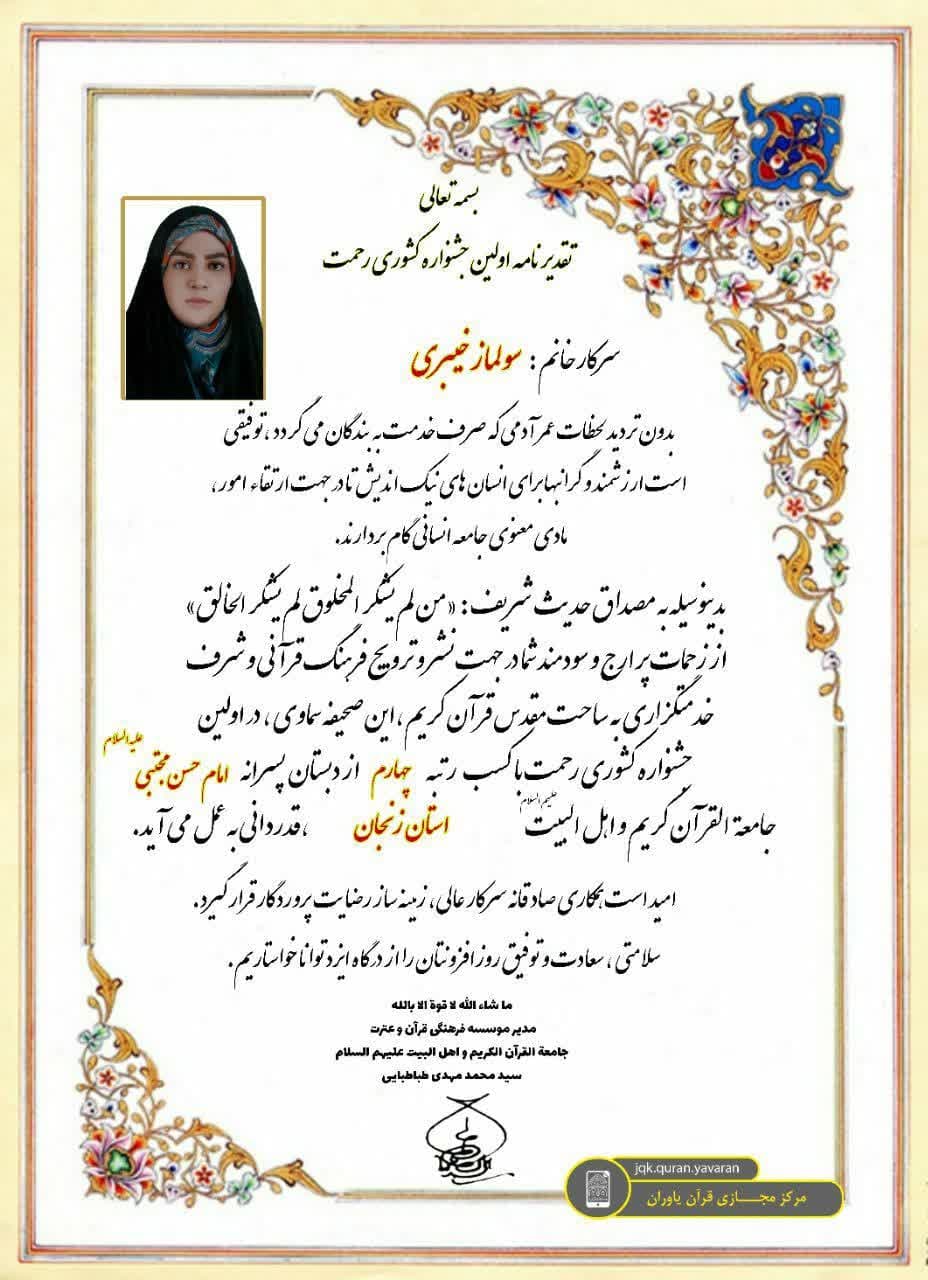 بسمه تعالی
تقدیر نامه اولین جشنواره کشوری رحمت
سرکار خانم : سولماز خیبری
بدون تردید لحظات عمر آدمی که صرف خدمت به بندگان می گردد ، توفیقی
است ارزشمند و گرانبها برای انسان های نیک اندیش تا در جهت ارتقاء امور ،
مادی معنوی جامعه انسانی گام بردارند.
بدینوسیله به مصداق حدیث شریف : «من لم یشکر المخلوق لم یشکر الخالق»
از زحمات پر ارج و سودمند شما در جهت نشر و ترویج فرهنگ قرآنی و شرف
خدمتگزاری به ساحت مقدس قرآن کریم ، این صحیفه سماوی ، در اولین
جشنواره کشوری رحمت با کسب رتبه چهارم از دبستان پسرانه امام حسن مجتبی علیه السلام
جامعة القرآن کریم و اهل البیت علیهم السلام استان زنجان ، قدردانی به عمل می آید.
امید است همکاری صادقانه سرکار عالی، زمینه ساز رضایت پروردگار قرار گیرد.
سلامتی ، سعادت و توفیق روز افزونتان را از درگاه ایزد توانا خواستاریم.
ما شاء الله لا قوة الا بالله
مدیر موسسه فرهنگی قرآن و عترت
جامعة القرآن الکریم و اهل البیت علیهم السلام
سید محمد مهدی طباطبایی
jqk.quran.yavaran
مرکز مجــازی قرآن یاوران